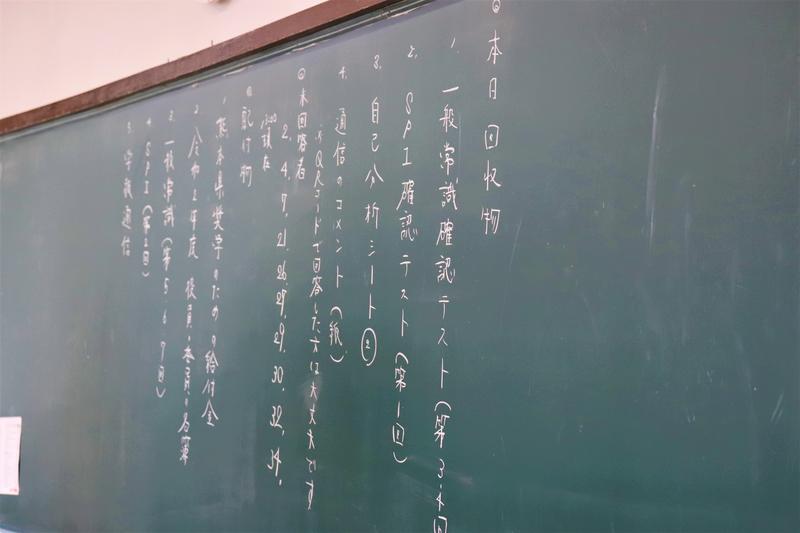 ◎本日回収物
1. 一般常識確認テスト(第3.4回
2. SPI確認テスト(第1回)
3. 自己分析シート②
4. 通信のコメント(紙)
※QRコードで回答した方は大丈夫です
◎未回答者
2. 4. 7. 21. 26. 27. 29. 30. 32. 34.
現在
◎配付物
1. 熊本県奨学のための給付金
2. 令和2年度 役員・委員の名簿
3. 一般常識(第5.6.7回)
4. SPI(第2回)
5. 学級通信